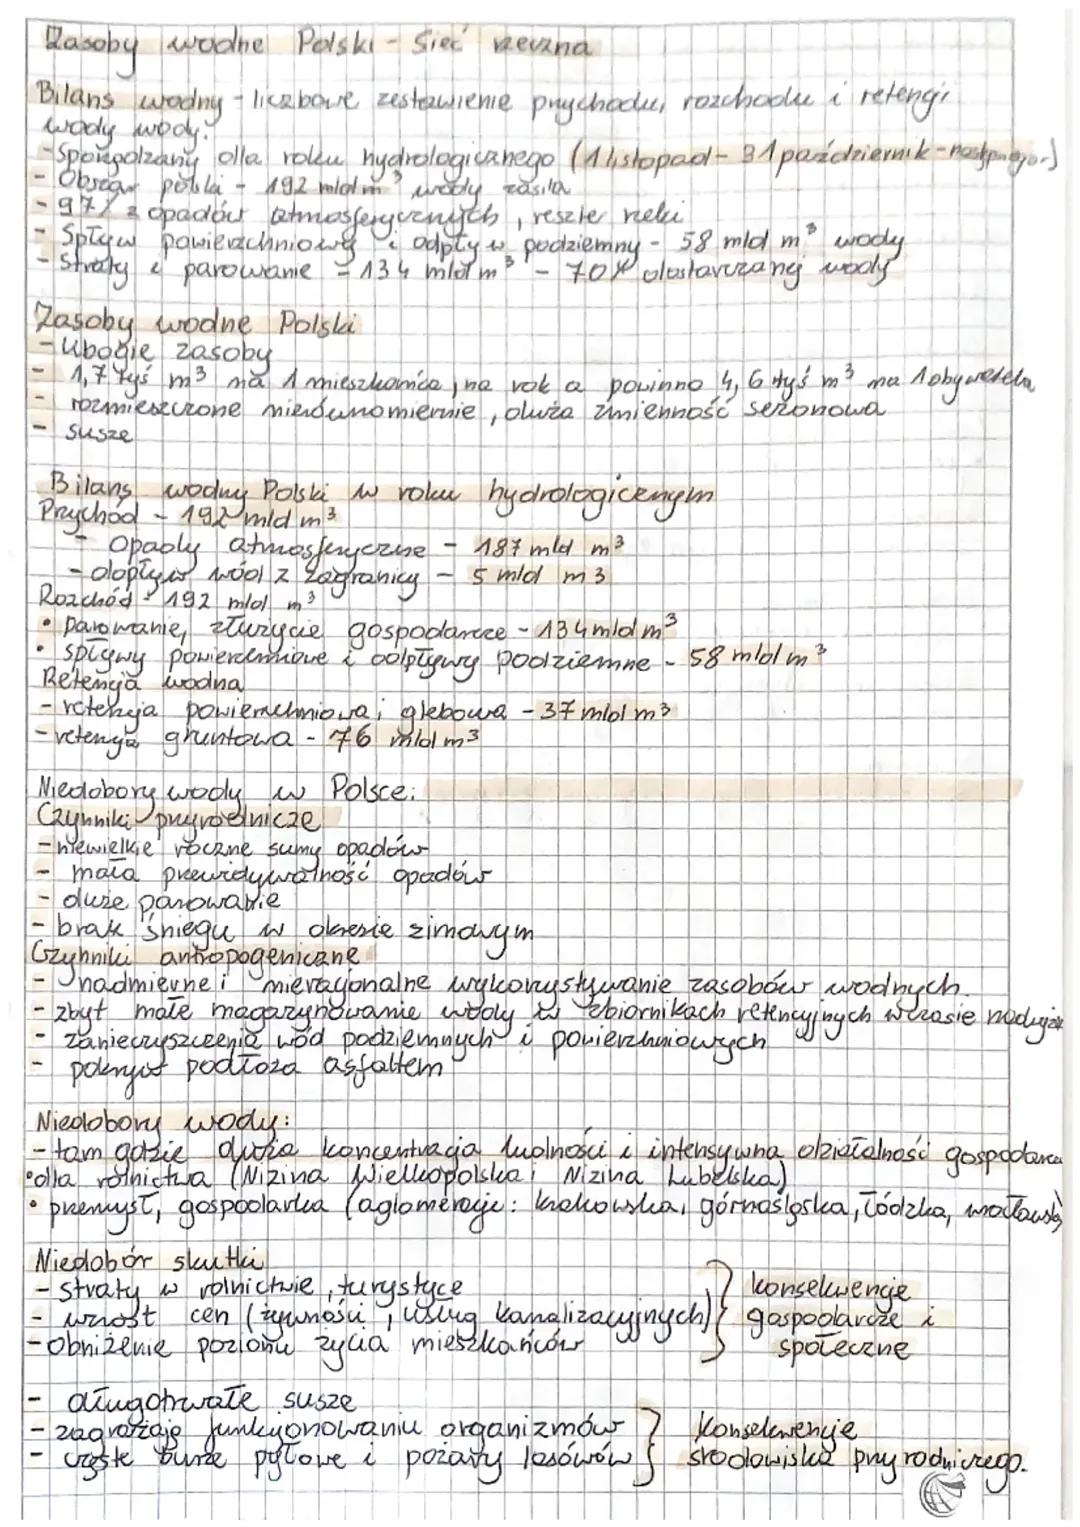 Zasoby wodne Polski - Sieć rzeczna
Bilans wodny - liczbowe zestawienie przychodu, rozchodu i retencji
wody wody.
- Sporządzany dla roku hydrologicznego (1 listopad - 31 październik - następnego r.)
- Obszar polski - 192 mld m³ wody zasila
- 97% z opadów atmosferycznych, reszte rzeki
- Spływ powierzchniowy i odpływ podziemny - 58 mld m³ wody
- Straty i parowanie - 134 mld m³ - 70% dostarczanej wody
Zasoby wodne Polski
- Ubogie zasoby
- 1,7 tyś m³ na 1 mieszkańca, na rok a powinno 4,6 tyś m³ na 1 obywatela
- rozmieszczone nierównomiernie, duża zmienność sezonowa
- susze
Bilans wodny Polski w roku hydrologicznym
Przychód - 192 mld m³
- Opady atmosferyczne - 187 mld m³
- dopływ wód z zagranicy - 5 mld m3
Rozchód - 192 mld m³
• parowanie, zużycie gospodarcze - 134 mld m³
• spływy powierzchniowe i odpływy podziemne - 58 mld m³
Retencja wodna
- retencja powierzchniowa i glebowa - 37 mld m³
- retencja gruntowa - 76 mld m³
Niedobory wody w Polsce:
Czynniki przyrodnicze
- niewielkie roczne sumy opadów
- mała przewidywalność opadów
- duże parowanie
- brak śniegu w okresie zimowym
Czynniki antropogeniczne
- nadmierne i nieracjonalne wykorzystywanie zasobów wodnych.
- zbyt małe magazynowanie wody w zbiornikach retencyjnych w czasie nadwyżek
- zanieczyszczenia wód podziemnych i powierzchniowych
- pokrycie podłoża asfaltem
Niedobory wody:
- tam gdzie duża koncentracja ludności i intensywna działalność gospodarcza
• dla rolnictwa (Nizina Wielkopolska i Nizina Lubelska)
• przemysł, gospodarka (aglomeracje: krakowska, górnośląska, łódzka, wrocławska)
Niedobór skutki
- straty w rolnictwie, turystyce
- wzrost cen (żywności, usług kanalizacyjnych)
- Obniżenie poziomu życia mieszkańców
konsekwencje
gospodarcze i
społeczne
- długotrwałe susze
- zagrażają funkcjonowaniu organizmów
- częste burze pyłowe i pożary lasówów
Konsekwencje
środowiska przyrodniczego.